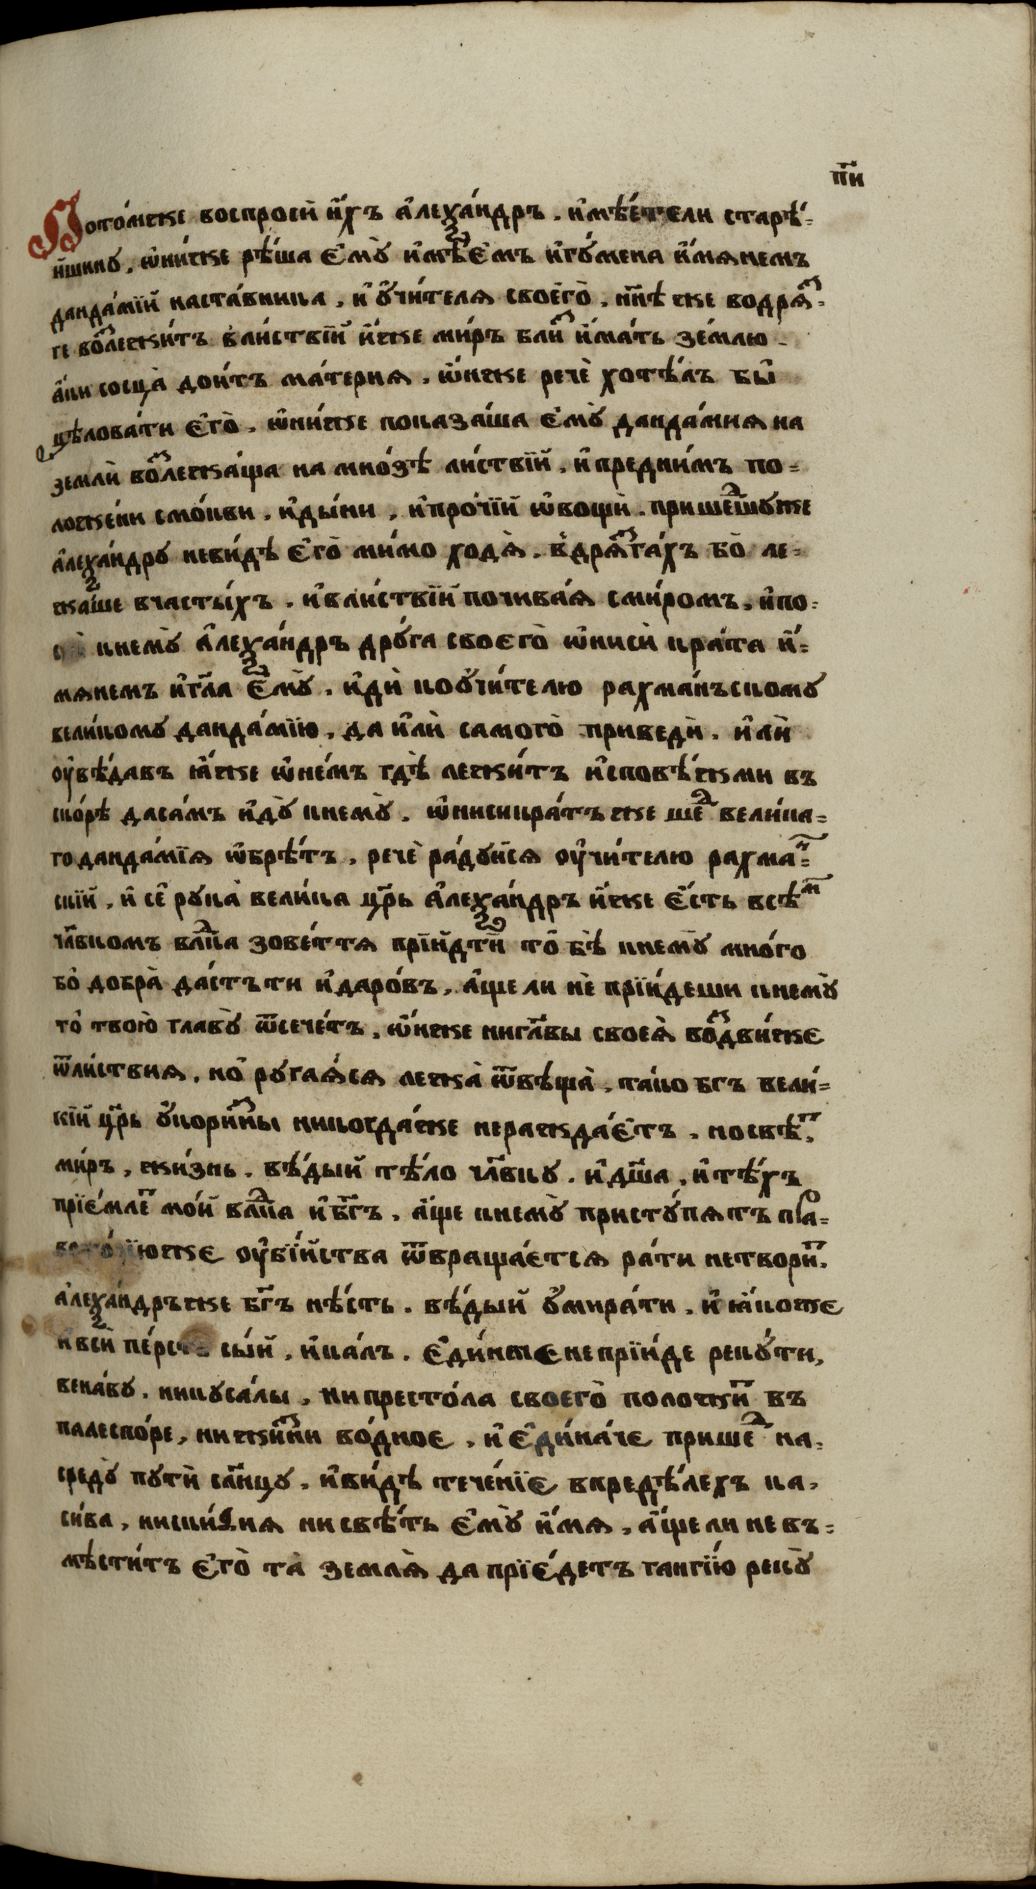 п҃и
Пото́мже воспроси̂ и҆́хъ а҆леѯа́ндръ . и҆мѣ́етели старѣ́-
и҆шину , ѡ҆ни́же рѣ́ша є҆мꙋ̀ и҆́мѣ́емъ и҆гꙋ́мена и҆́мянемъ
данда́мїй наста́вника , и҆ ᲂу҆чи́теля своего̀ , нн҃ѣ же водрѧ́з-
ге во́злежи́тъ вли́ствїй и҆́же ми́ръ бли́з и҆́мать зе́млю .
а҆́ки сосца̀ дои́тъ ма́терня . ѡ҆́нже рече̂ хотѣ́лъ бы̂
цѣлова́ти є҆го̀ . ѡ҆ни́же показа́ша є҆мꙋ̀ данда́мия на
земли̂ во́злежа́ща на мно́зѣ ли́ствїй , и҆ вредни́мъ по-
ложе́ни смо́кви . и҆ды́ни , и҆про́чїй ѡ҆́вощи̂ . прише́дшуже
а҆леѯа́ндру неви́дѣ є҆го̀ ми́мо ходя̀ . в дрѧ́згахъ бо̀ ле-
жа́ше вчасты́хъ . и҆вли́ствїй почива́я сми́ромъ , и҆по-
кнему̀ а҆леѯа́ндръ дру́га своего̀ ѡ҆ниси̂ кра́та и҆́-
мянемъ и҆гл҃а є҆мꙋ̀ . и҆ди̂ коу҆чи́телю рахма́нъскому
вели́кому данда́мїю , да и҆ли̂ самого̀ приведи̂ . и҆ли̂
ᲂу҆вѣ́давъ ꙗ҆́же ѡ҆не́мъ гдѣ̀ лежи́тъ и҆сповѣ́жми въ
ско́рѣ даса́мъ и҆дꙋ̀ кнемꙋ̀ . ѡ҆нисикра́тъ же ше́д вели́ка-
го данда́мїя ѡ҆брѣ́тъ , рече̂ ра́дуйся ᲂу҆чи́телю рахма́н-
скїй , и҆ се̂ рука̀ вели́ка цр҃ь а҆леѯа́ндръ и҆́же є҆́сть всѣ́м
чл҃вкомъ влд҃ка зове́ття прїйдти̂ то̂ бѣ̀ кнемꙋ̀ мно́го
бо̀ добра̀ да́стъ ти и҆даро́въ , а҆́ще ли нѐ прїи́деши кнемꙋ̀
то̀ твою̀ главу̀ ѿсече́тъ , ѡ҆́нже ниглавы своея̀ во́здвиже
ѿли́ствия , но̀ руга́яся лежа̀ ѿвѣща̀ , та́ко бг҃ъ вели́-
кїй цр҃ь ᲂу҆кори́зны никогда́же неражда́єтъ . но свѣ́т .
ми́ръ , жи́знь . вѣ́дый тѣ́ло чл҃вку . и҆ дш҃а , и҆ тѣ́хъ
прїе́млет мо́й влд҃ка и҆ бг҃ъ . а҆́ще кнемꙋ̀ присту́пятъ пра-
юже ᲂу҆бїи́ства ѿвраща́ется ра́ти нетвори́т .
а҆леѯа́ндръже бг҃ъ нѣ́сть . вѣ́дый ᲂу҆мира́ти . и҆ ꙗ҆́коже
и҆ все́й пе́рсть сы́й , и҆ка́лъ . є҆ди́нже непрїи́де реку́ти ,
вена́ву . никуса́лы , ни престо́ла своего̀ положи́т въ
палеспо́ре , ни жи́зни во́дное . и҆ є҆ди́наче прише́д на-
среду̀ пути̂ слн҃цу . и҆ви́дѣ тече́нїе впредѣ́лехъ ка-
си́ва , нискиѳия нисвѣ́тъ є҆мꙋ̀ и҆́мя , а҆́ще ли не въ-
мѣсти́тъ є҆го̀ та̀ земля̀ да прїе́детъ гангїю реку̀